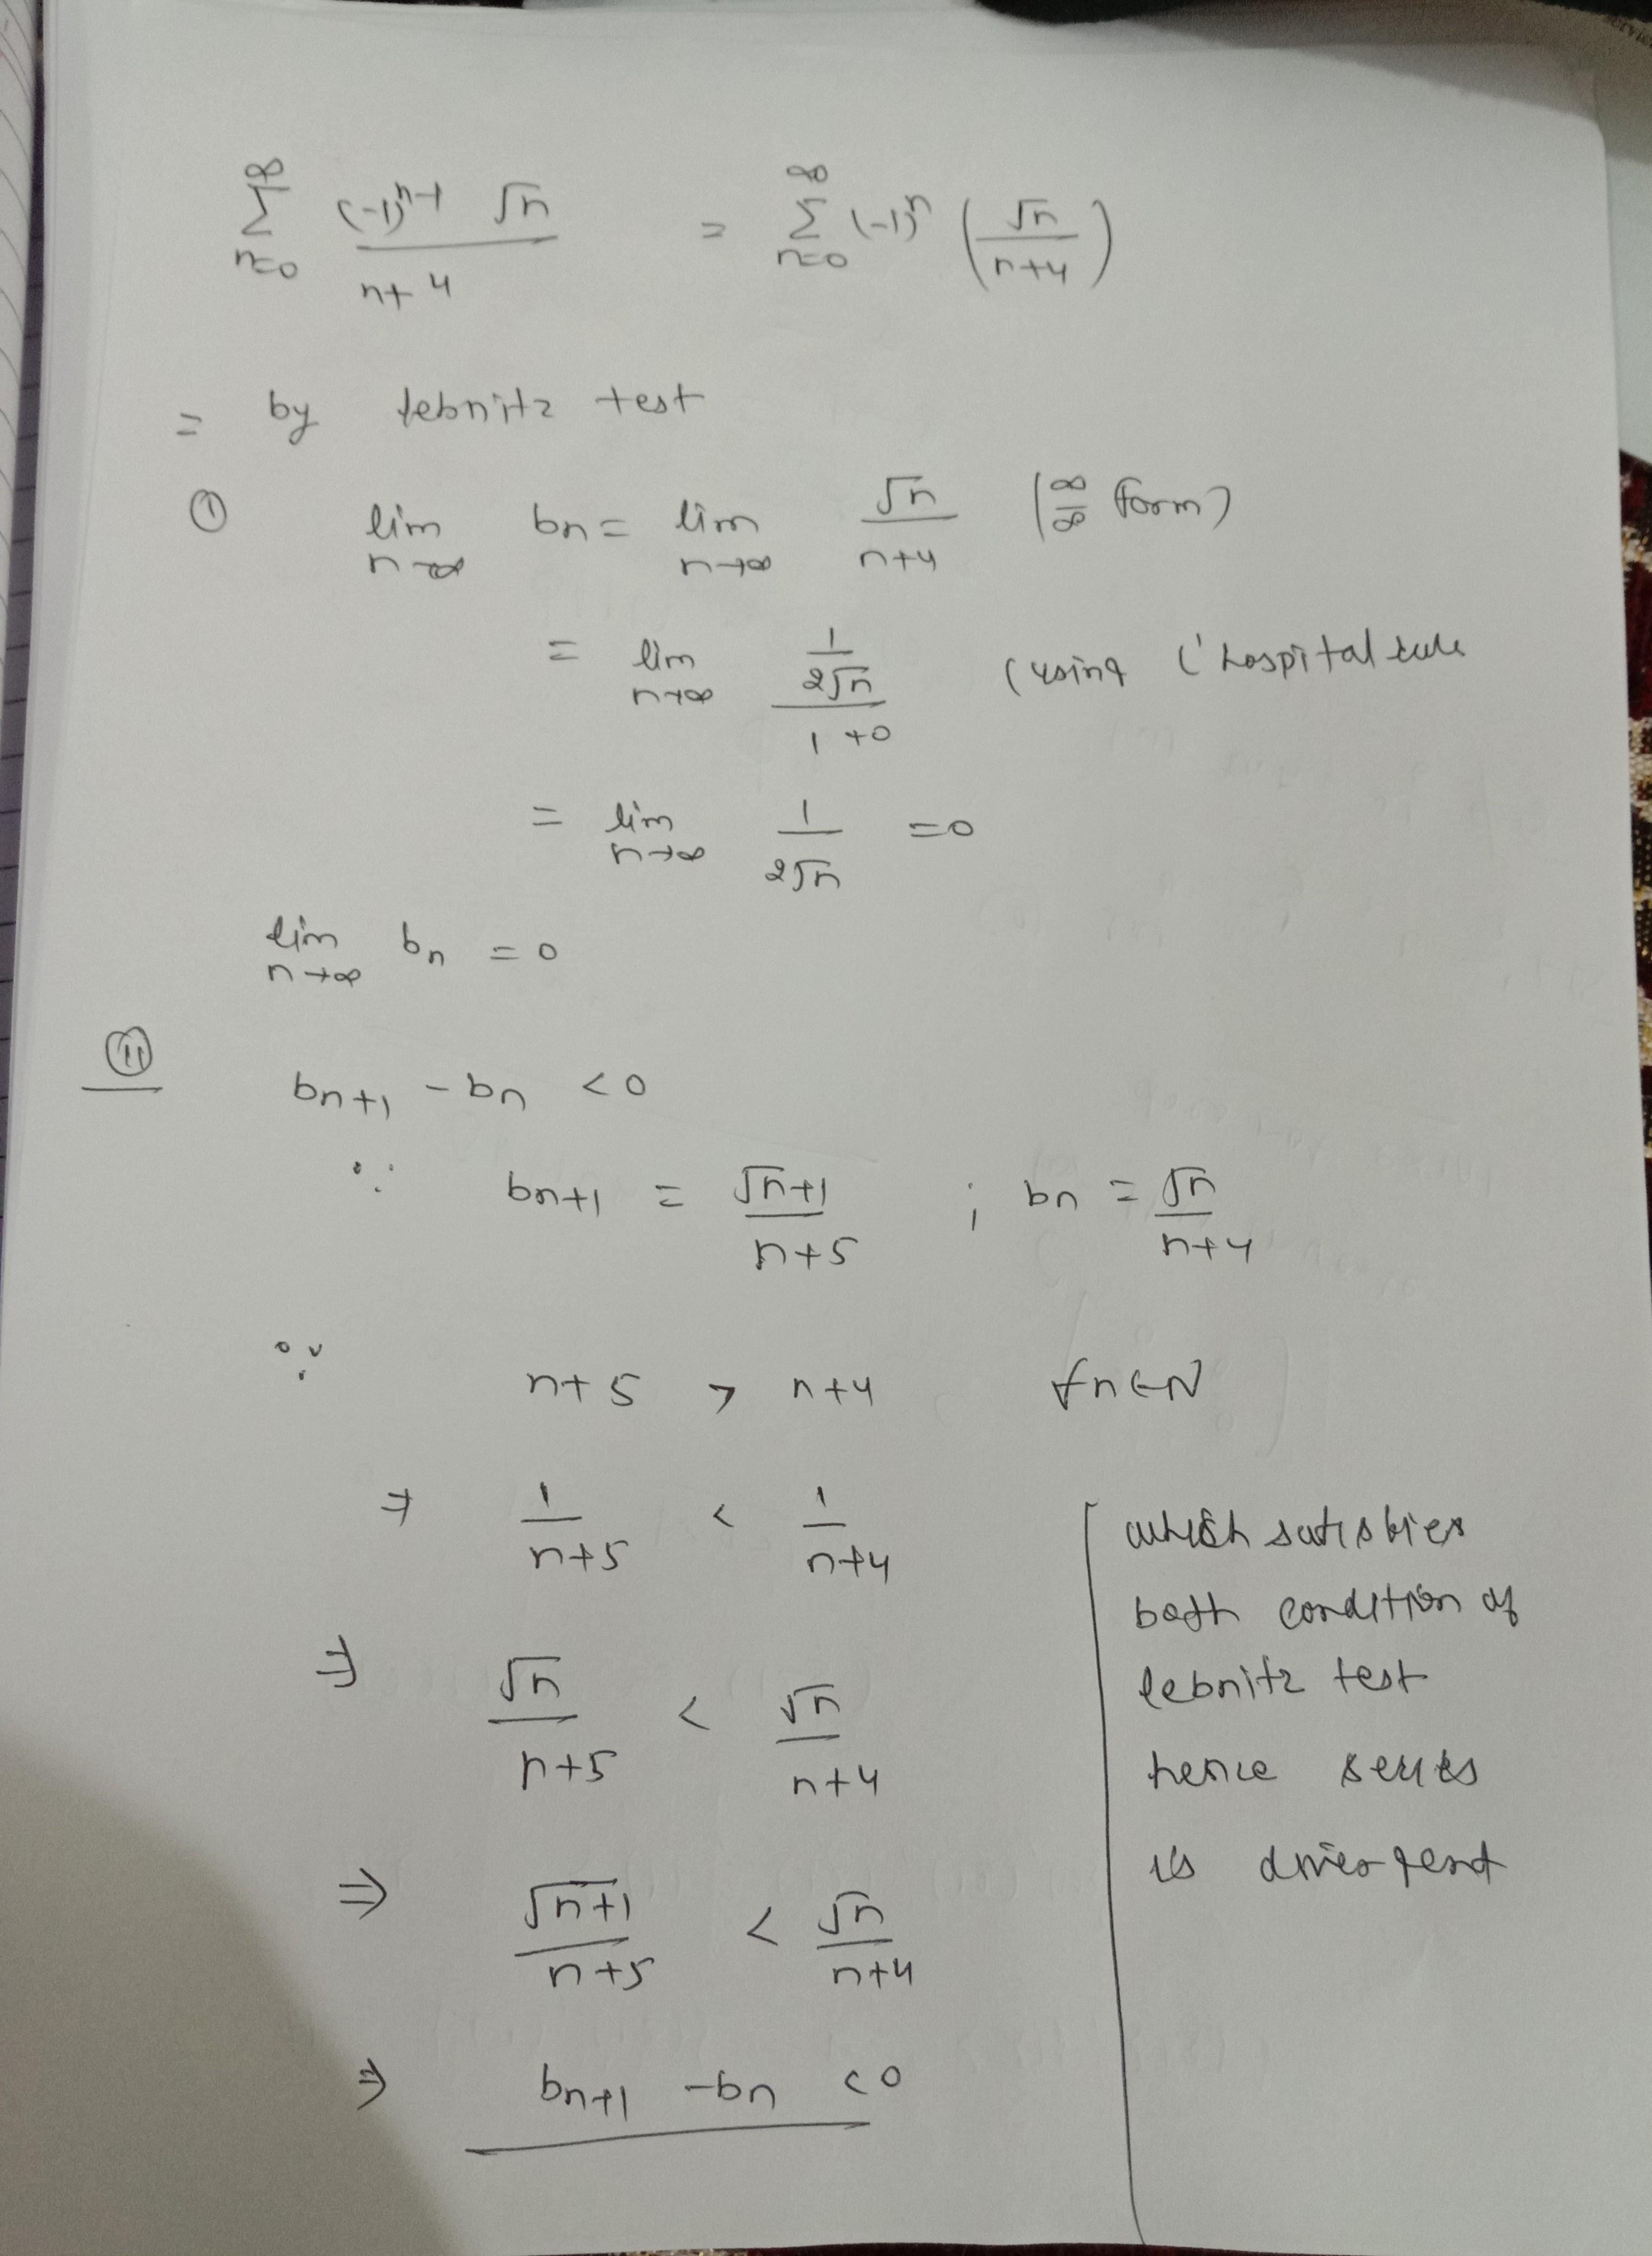 ∞
Σ (-1)ⁿ⁻¹ √n / n+4 = ∞ Σ n=0 (-1)ⁿ (√n / n+4)
n=0
= by lebnitz test
① lim n→∞ bn = lim n→∞ √n / n+4 (∞/∞ form)
= lim n→∞ (1 / 2√n) / 1+0 (using L'hospital rule
= lim n→∞ 1 / 2√n = 0
lim n→∞ bn = 0
(ii) bn+1 - bn < 0
∵ bn+1 = √n+1 / n+5 ; bn = √n / n+4
∵ n+5 > n+4 ∀n∈N
⇒ 1 / n+5 < 1 / n+4
⇒ √n / n+5 < √n / n+4
⇒ √n+1 / n+5 < √n / n+4
⇒ bn+1 - bn < 0
which satisfies
both condition of
lebnitz test
hence series
is divergent